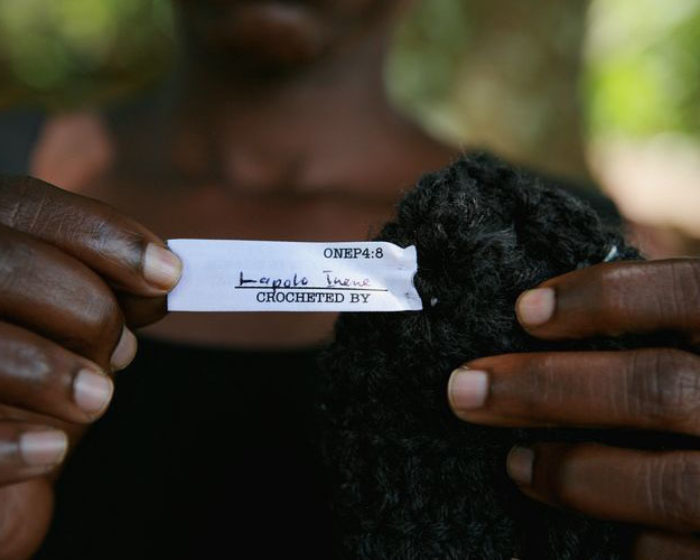 ONEP4:8
Lapolo Irene
CROCHETED BY